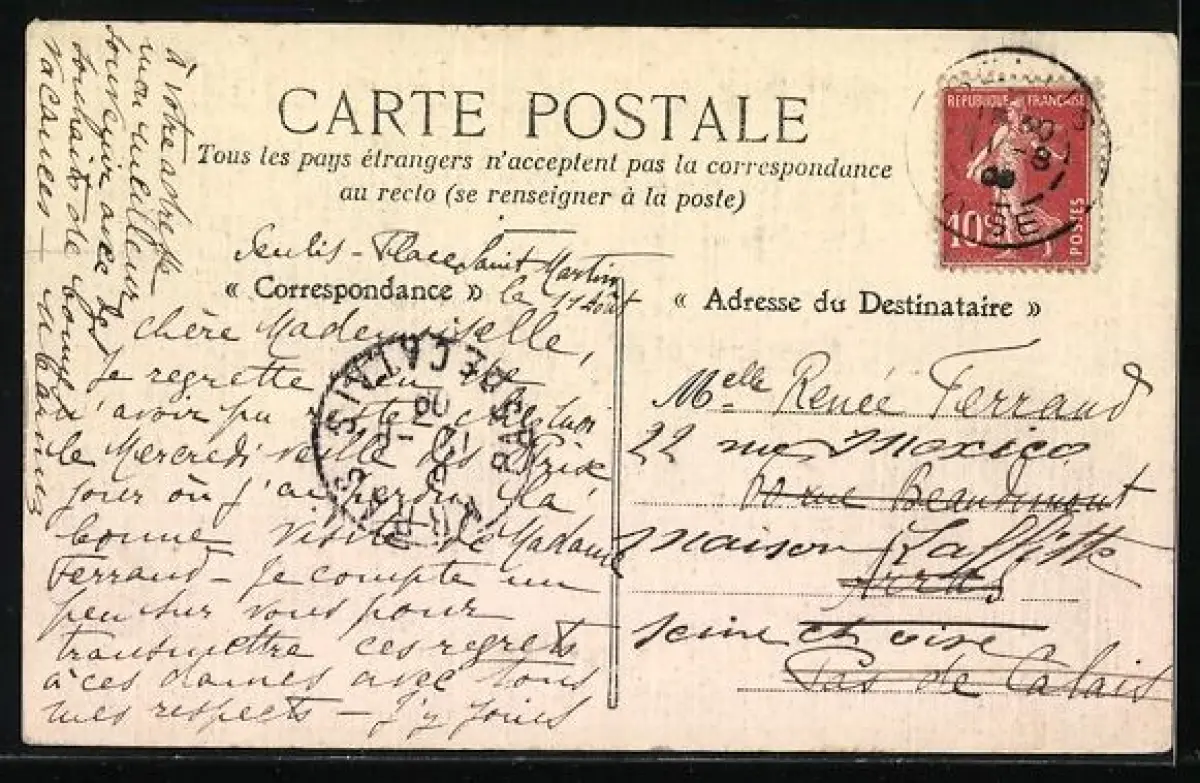 CARTE POSTALE
Tous les pays étrangers n'acceptent pas la correspondance
au recto (se renseigner à la poste)
REPUBLIQUE FRANÇAISE
10c
POSTES
OISE
Senlis - Place Saint Martin
le 11 Août
« Correspondance »
chère Mademoiselle,
Je regrette de
n'avoir pu rester chez moi
le Mercredi veille des Prix
jour où j'ai perdu la
bonne visite de Madame
Ferrand - Je compte un
peu sur vous pour
transmettre ces regrets
à ces dames avec tous
mes respects - J'y joins
à votre adresse
mon meilleur
souvenir avec des
souhaits de bonnes
vacances -
ARRAS
PAS-DE-CALAIS
« Adresse du Destinataire »
Melle Renée Ferrand
22 rue Mexico
rue Beaudimont
maison Laffitte
Arras
seine et oise
Pas de Calais